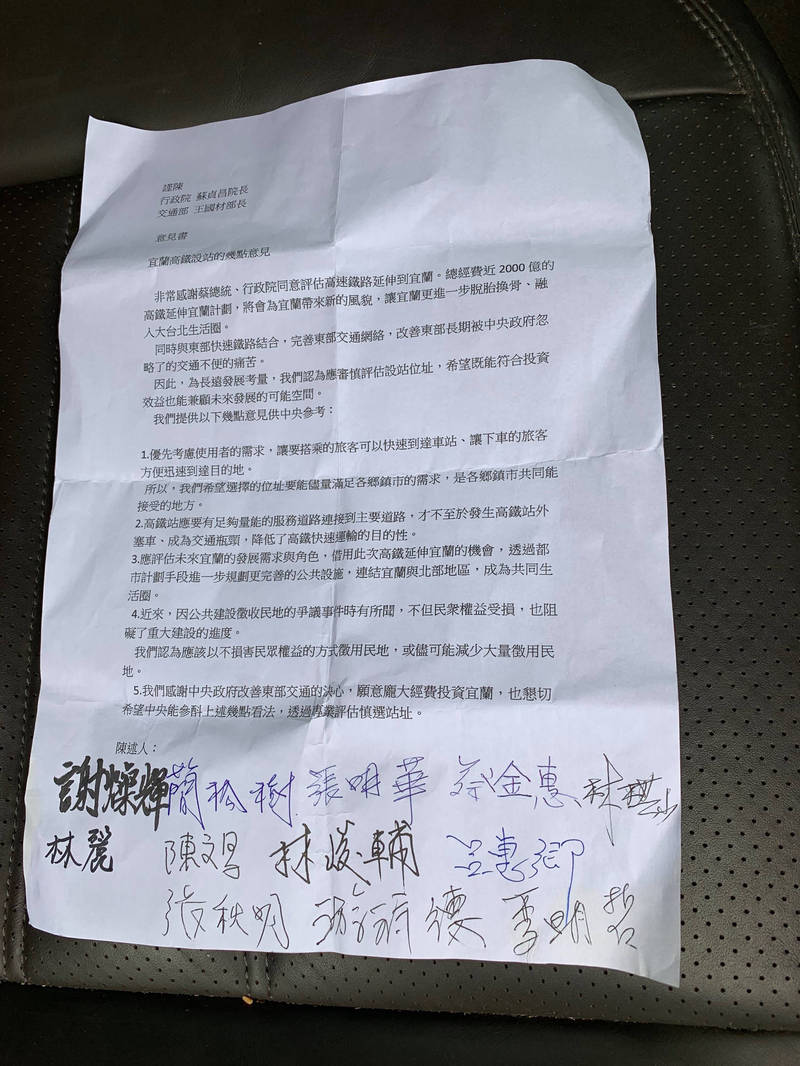 謹陳
行政院 蘇貞昌院長
交通部 王國材部長
意見書
宜蘭高鐵設站的幾點意見
非常感謝蔡總統、行政院同意評估高速鐵路延伸到宜蘭。總經費近 2000 億的
高鐵延伸宜蘭計劃，將會為宜蘭帶來新的風貌，讓宜蘭更進一步脫胎換骨、融
入大台北生活圈。
同時與東部快速鐵路結合，完善東部交通網絡，改善東部長期被中央政府忽
略了的交通不便的痛苦。
因此，為長遠發展考量，我們認為應審慎評估設站位址，希望既能符合投資
效益也能兼顧未來發展的可能空間。
我們提供以下幾點意見供中央參考：
1.優先考慮使用者的需求，讓要搭乘的旅客可以快速到達車站、讓下車的旅客
方便迅速到達目的地。
所以，我們希望選擇的位址要能儘量滿足各鄉鎮市的需求，是各鄉鎮市共同能
接受的地方。
2.高鐵站應要有足夠量能的服務道路連接到主要道路，才不至於發生高鐵站外
塞車、成為交通瓶頸，降低了高鐵快速運輸的目的性。
3.應評估未來宜蘭的發展需求與角色，借用此次高鐵延伸宜蘭的機會，透過都
市計劃手段進一步規劃更完善的公共設施，連結宜蘭與北部地區，成為共同生
活圈。
4.近來，因公共建設徵收民地的爭議事件時有所聞，不但民衆權益受損，也阻
礙了重大建設的進度。
我們認為應該以不損害民眾權益的方式徵用民地，或儘可能減少大量徵用民
地。
5.我們感謝中央政府改善東部交通的決心，願意龐大經費投資宜蘭，也懇切
希望中央能參酌上述幾點看法，透過專業評估慎選站址。
陳述人：
謝燦輝 簡松樹 張明華 蔡金惠 林
林麗 陳文昌 林岳輔
張秋明 李明哲